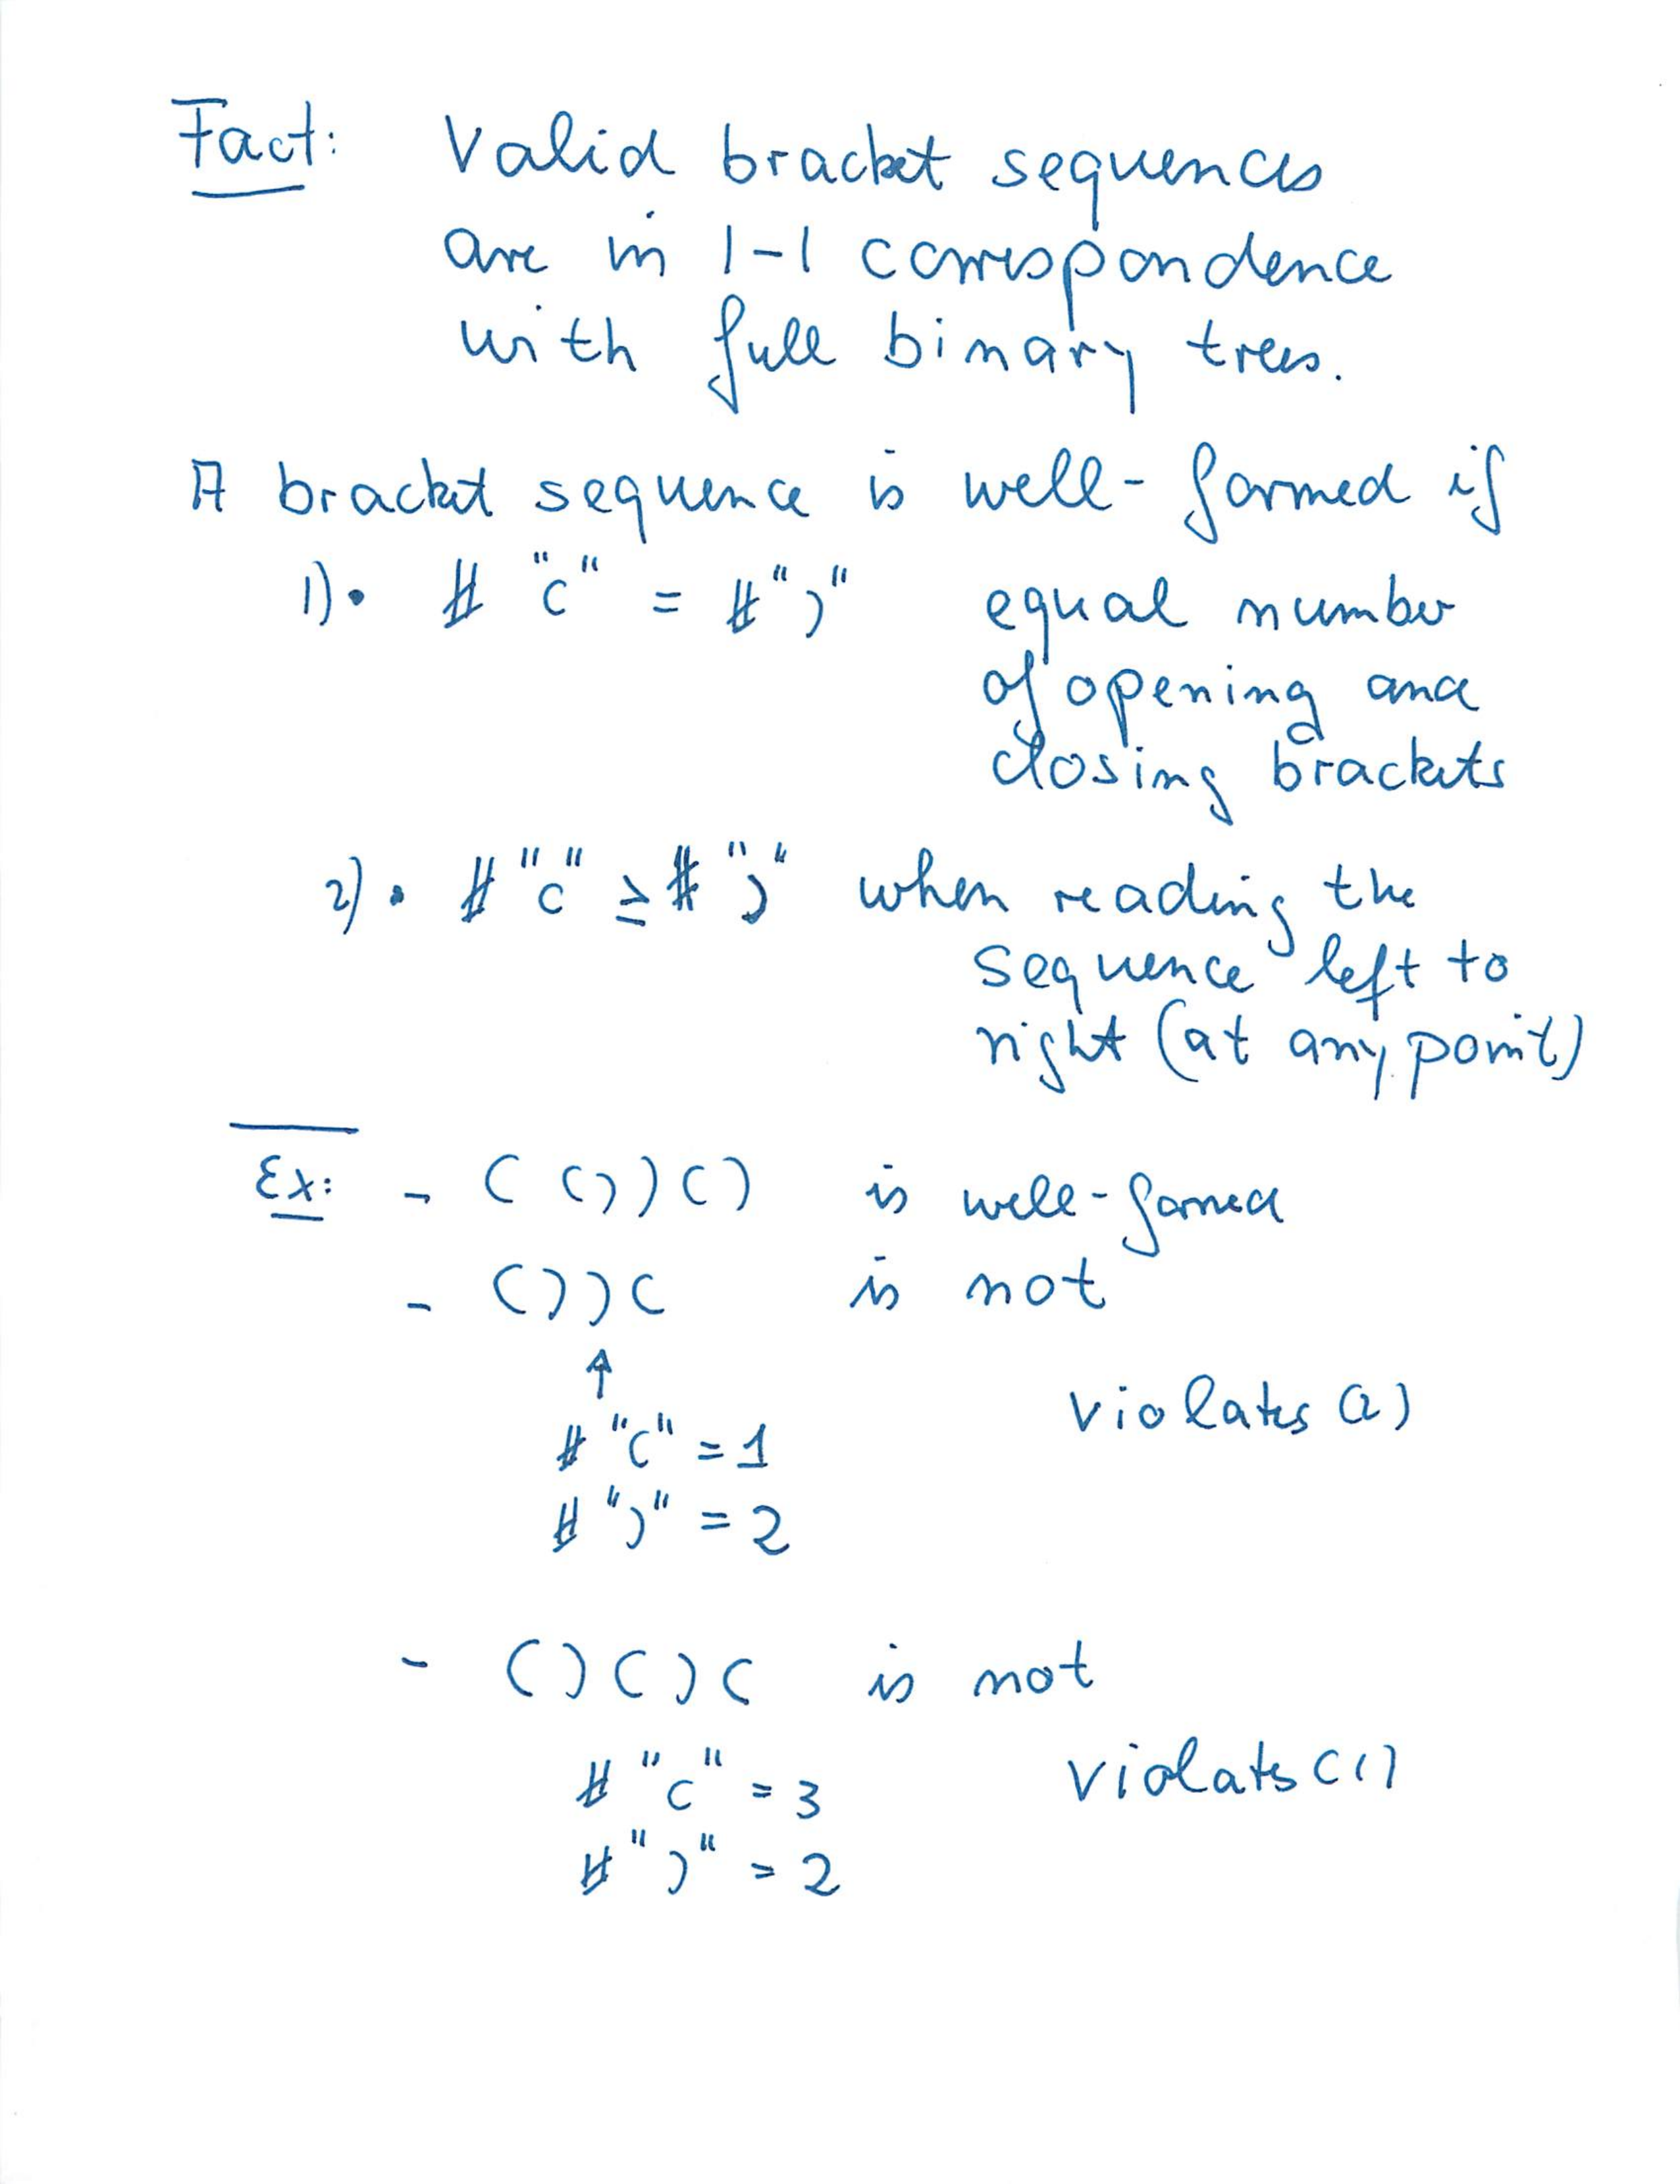 Fact: Valid bracket sequences
are in 1-1 correspondence
with full binary trees.
A bracket sequence is well-formed if
1) • # "(" = # ")" equal number
of opening and
closing brackets
2) • # "(" ≥ # ")" when reading the
sequence left to
right (at any point)
Ex: - (())() is well-formed
- ())( is not
↑
violates (2)
# "(" = 1
# ")" = 2
- ()()( is not
# "(" = 3 violates (1)
# ")" = 2